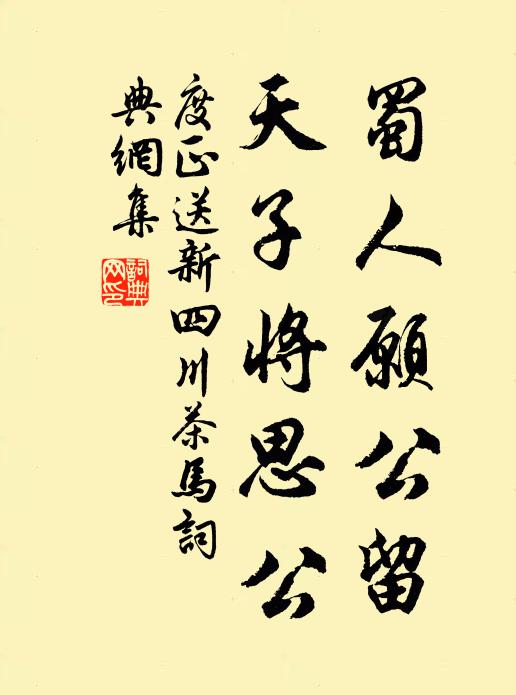 蜀人願公留
天子將思公
度正送新四川茶馬詞
典網集
詞典網印